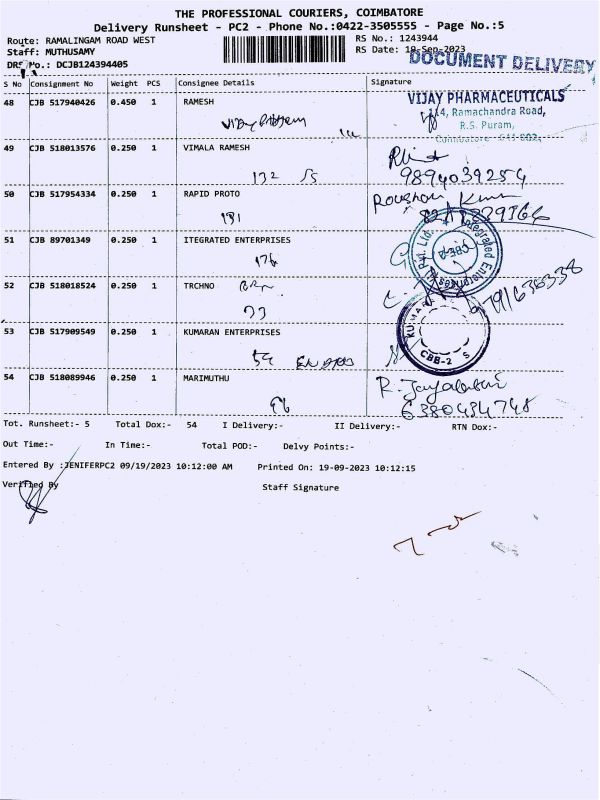 THE PROFESSIONAL COURIERS, COIMBATORE
Delivery Runsheet - PC2 - Phone No.:0422-3505555 - Page No.:5
Route: RAMALINGAM ROAD WEST RS No.: 1243944
Staff: MUTHUSAMY RS Date: -Sep-2023
DRS No.: DCJB124394405 DOCUMENT DELIVERY
S No Consignment No Weight PCS Consignee Details Signature
48 CJB 517940426 0.450 1 RAMESH VIJAY PHARMACEUTICALS
114, Ramachandra Road,
R.S. Puram,
Coimbatore 641 002.
49 CJB 518013576 0.250 1 VIMALA RAMESH
132 9894039254
50 CJB 517954334 0.250 1 RAPID PROTO
181
51 CJB 89701349 0.250 1 ITEGRATED ENTERPRISES Integrated Enterprises Pvt. Ltd.
176
52 CJB 518018524 0.250 1 TRCHNO
53 CJB 517909549 0.250 1 KUMARAN ENTERPRISES CBB-2
54 CJB 518089946 0.250 1 MARIMUTHU
96 6380434748
Tot. Runsheet:- 5 Total Dox:- 54 I Delivery:- II Delivery:- RTN Dox:-
Out Time:- In Time:- Total POD:- Delvy Points:-
Entered By :JENIFERPC2 09/19/2023 10:12:00 AM Printed On: 19-09-2023 10:12:15
Verified By Staff Signature